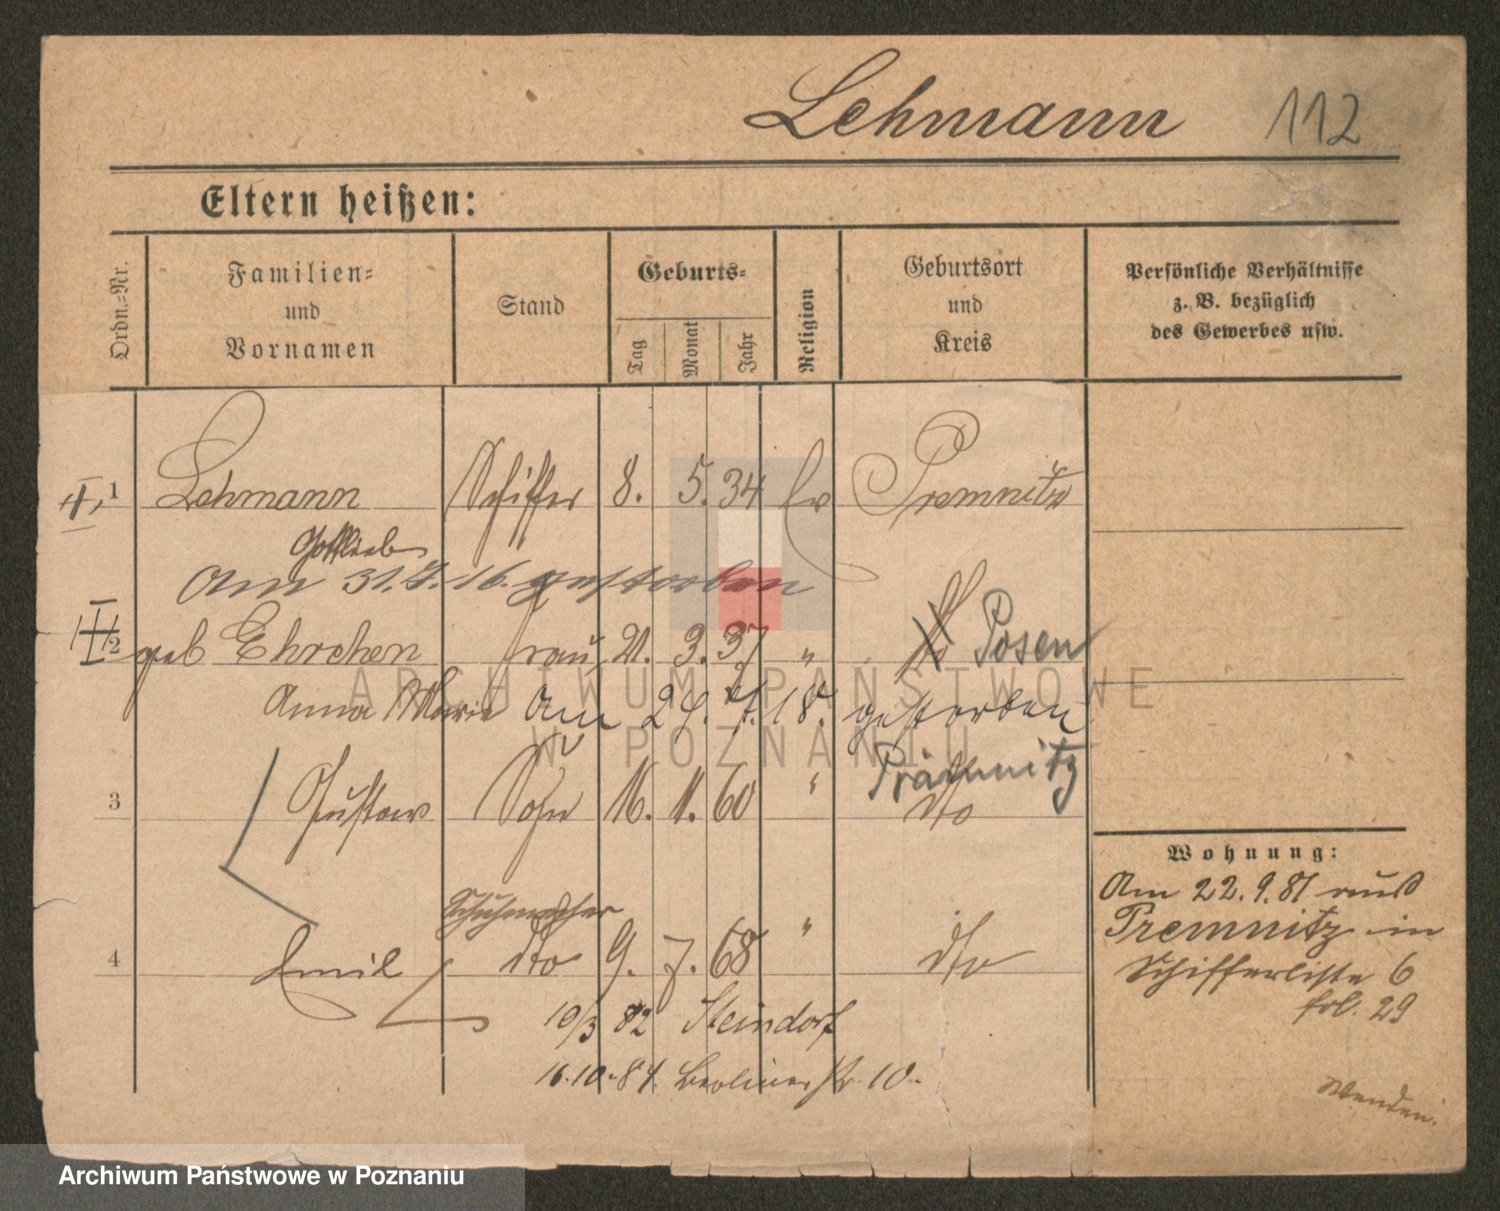 Lehmann 112
Eltern heißen:
Ordn.-Nr.
Familien-
und
Vornamen
Stand
Geburts-
Tag
Monat
Jahr
Religion
Geburtsort
und
Kreis
Persönliche Verhältnisse
z. B. bezüglich
des Gewerbes usw.
I 1 Lehmann Schiffer 8. 5. 34 Ev Premnitz
Gottlieb
Am 31. 16. gestorben
II 2 geb Ehrchen Frau 21. 3. 37 " Posen
Anna Marie Am 29. 7. 18. gestorben
Prämnitz
3 Gustav Sohn 16. 11. 60 " dto
Schuhmacher
4 Emil dto 9. 7. 68 " dto
10/3 82 Steindorf
16.10.84. Berliner str 10.
Wohnung:
Am 22.9.81 aus
Premnitz in
Schifferliste 6
fol. 29
Wenden.
ARCHIWUM PAŃSTWOWE
W POZNANIU
Archiwum Państwowe w Poznaniu